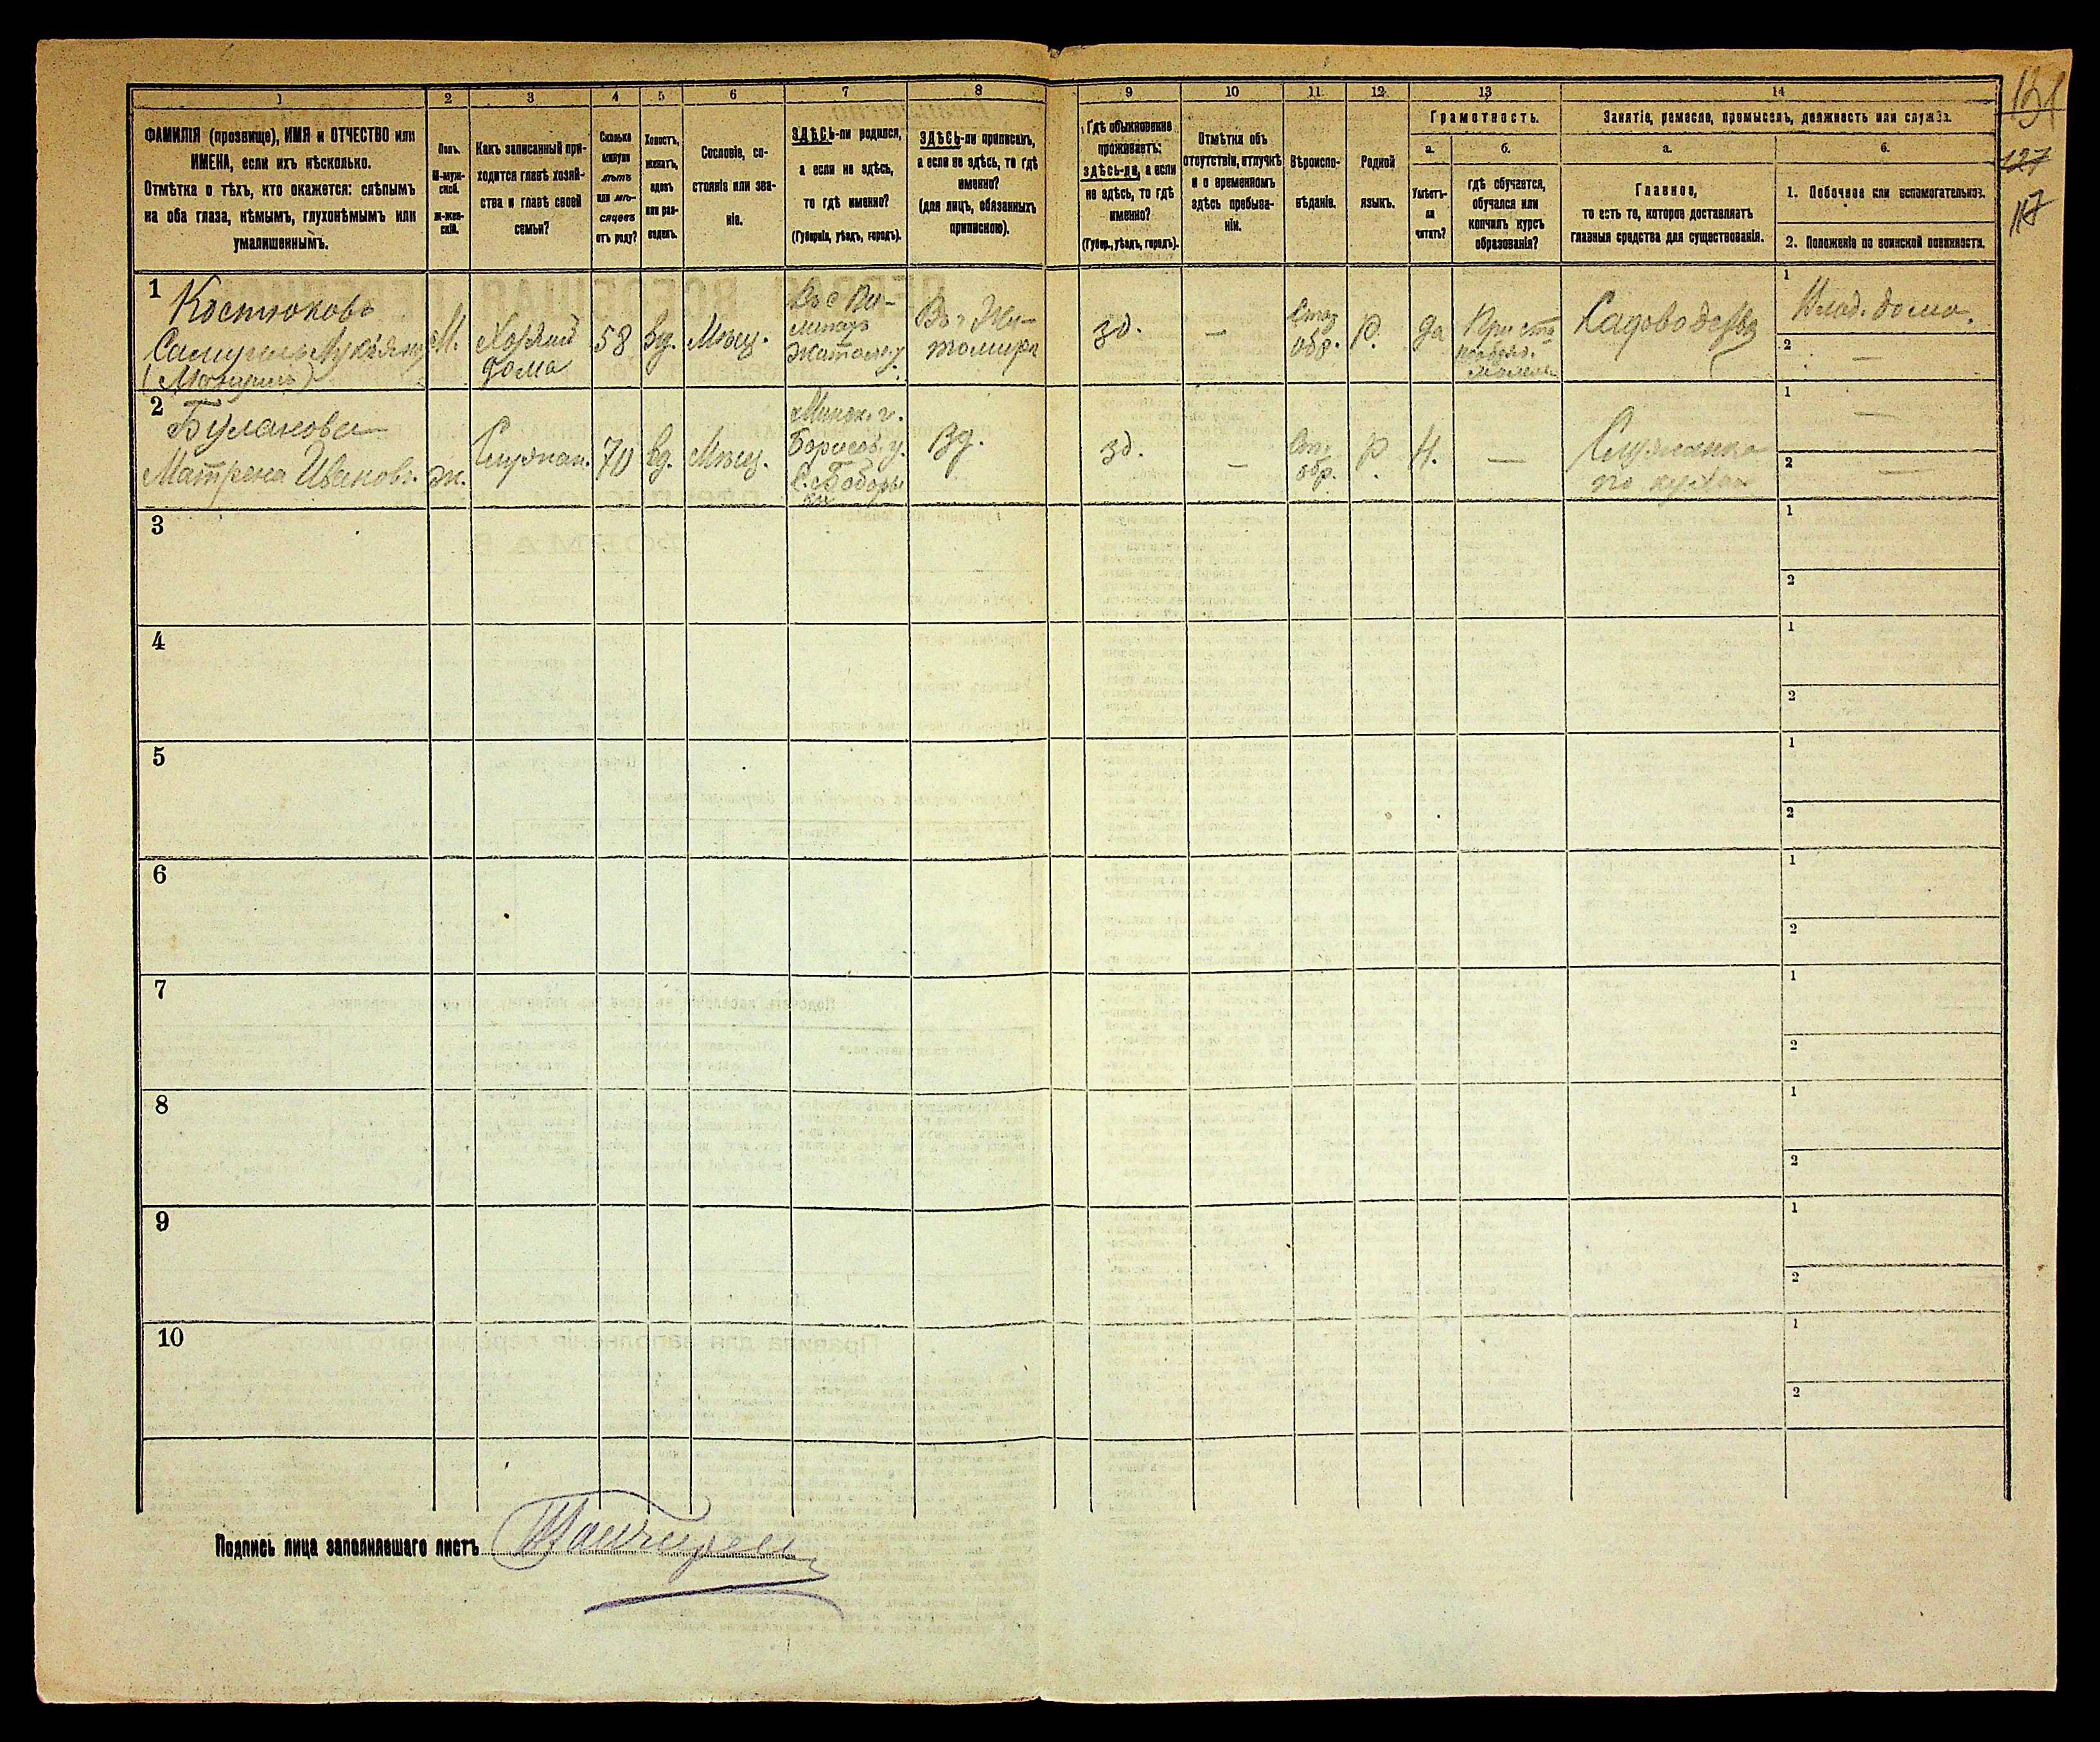 131
127
117
1
2
3
4
5
6
7
8
9
10
11
12
13
14
ФАМИЛІЯ (прозвище), ИМЯ и ОТЧЕСТВО или
ИМЕНА, если ихъ нѣсколько.
Отмѣтка о тѣхъ, кто окажется: слѣпымъ
на оба глаза, нѣмымъ, глухонѣмымъ или
умалишеннымъ.
Полъ.
М-муж-
ской.
ж-жен-
скій.
Какъ записанный при-
ходится главѣ хозяй-
ства и главѣ своей
семьи?
Сколько
минуло
лѣтъ
или мѣ-
сяцевъ
отъ роду?
Холостъ,
женатъ,
вдовъ
или раз-
веденъ.
Сословіе, со-
стояніе или зва-
ніе.
ЗДѢСЬ-ли родился,
а если не здѣсь,
то гдѣ именно?
(Губернія, уѣздъ, городъ).
ЗДѢСЬ-ли приписанъ,
а если не здѣсь, то гдѣ
именно?
(для лицъ, обязанныхъ
припискою).
Гдѣ обыкновенно
проживаетъ:
здѣсь-ли, а если
не здѣсь, то гдѣ
именно?
(Губер., уѣздъ, городъ).
Отмѣтка объ
отсутствіи, отлучкѣ
и о временномъ
здѣсь пребыва-
ніи.
Вѣроиспо-
вѣданіе.
Родной
языкъ.
Грамотность.
а.
Умѣетъ-
ли
читать?
б.
гдѣ обучается,
обучался или
кончилъ курсъ
образованія?
Занятіе, ремесло, промыселъ, должность или служба.
а.
Главное,
то есть то, которое доставляетъ
главныя средства для существованія.
б.
1. Побочное или вспомогательное.
2. Положеніе по воинской повинности.
1
Костюковъ
Самуилъ
М.
Хозяинъ
дома
58
вд.
Мѣщ.
Житом. у.
Въ г. Жи-
томирѣ
зд.
—
Стар
обр.
р.
да
Садоводство
1
Влад. дома.
2
—
2
Булакова
Матрена Иванов.
ж.
Служан.
70
вд.
Мѣщ.
Минск. г.
Борисов. у.
зд.
зд.
—
Стар.
обр.
р.
н.
—
Служанка
по кухни
1
—
2
—
3
1
2
4
1
2
5
1
2
6
1
2
7
1
2
8
1
2
9
1
2
10
1
2
Подпись лица заполнявшаго листъ